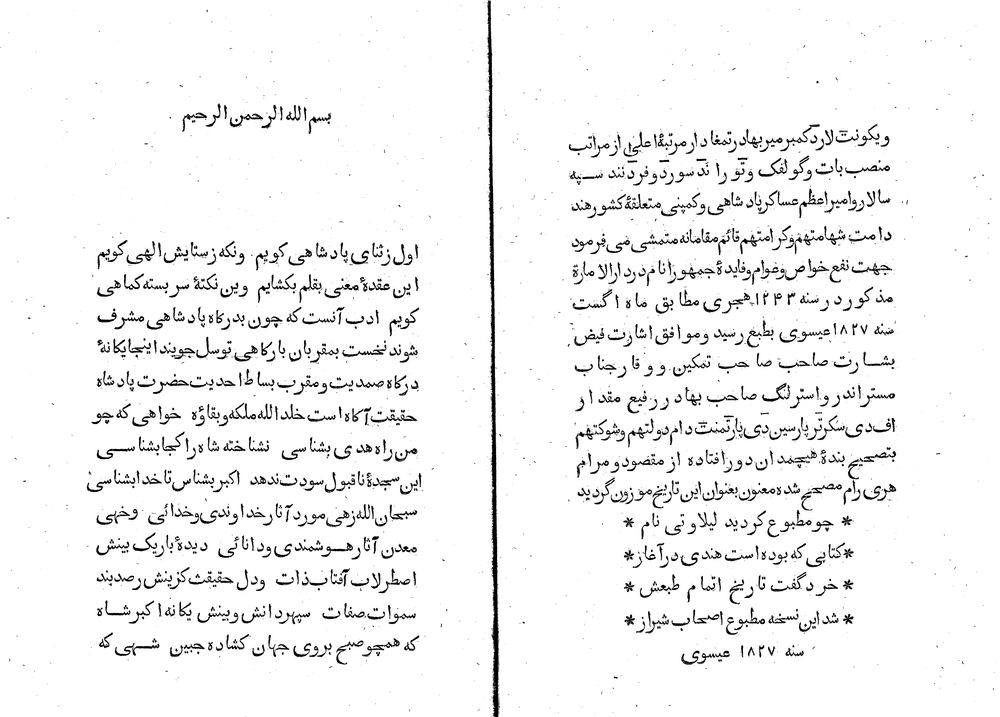 ویکونت لارد کمبرمیر بهادر تمغادار مرتبهٔ اعلی از مراتب
منصب بات و گولفک و تو راند سورد و فردنند سپه
سالار و امیر اعظم عساکر پادشاهی و کمپنی متعلقهٔ کشور هند
دامت شهامتهم و کرامتهم قائم مقامانه متمشی می فرمود
جهت نفع خواص و عوام و فایدهٔ جمهور انام در دار الامارة
مذکور در سنه ۱۲۴۳ هجری مطابق ماه اگست
سنه ۱۸۲۷ عیسوی بطبع رسید و موافق اشارت فیض
بشارت صاحب صاحب تمکین و وقار جناب
مستر اندرو استرلنگ صاحب بهادر رفیع مقدار
اف دی سکرتر پارسین دی پارتمنت دام دولتهم و شوکتهم
بتصحیح بندهٔ هیچمدان دور افتاده از مقصود و مرام
هری رام مصحح شده معنون بعنوان این تاریخ موزون گردید
* چو مطبوع کردید لیلاوتی نام *
* کتابی که بوده است هندی در آغاز *
* خرد گفت تاریخ اتمام طبعش *
* شد این نسخه مطبوع اصحاب شیراز *
سنه ۱۸۲۷ عیسوی
بسم الله الرحمن الرحیم
اول ز ثنای پادشاهی کویم ونکه ز ستایش الهی کویم
این عقدهٔ معنی بقلم بکشایم وین نکتهٔ سر بسته کماهی
کویم ادب آنست که چون بدرکاه پادشاهی مشرف
شوند نخست بمقربان بارکاهی توسل جویند اینجا یکانهٔ
درکاه صمدیت و مقرب بساط احدیت حضرت پادشاه
حقیقت آکاه است خلد الله ملکه و بقاؤه خواهی که چو
من راه هدی بشناسی نشناخته شاه را کجا بشناسی
این سجدهٔ ناقبول سودت ندهد اکبر بشناس تا خدا بشناسی
سبحان الله زهی مورد آثار خداوندی و خدائی وخهی
معدن آثار هوشمندی و دانائی دیدهٔ باریک بینش
اصطرلاب آفتاب ذات ودل حقیقت کزینش رصدبند
سموات صفات سپهر دانش و بینش یکانه اکبر شاه
که همچو صبح بروی جهان کشاده جبین شهی که